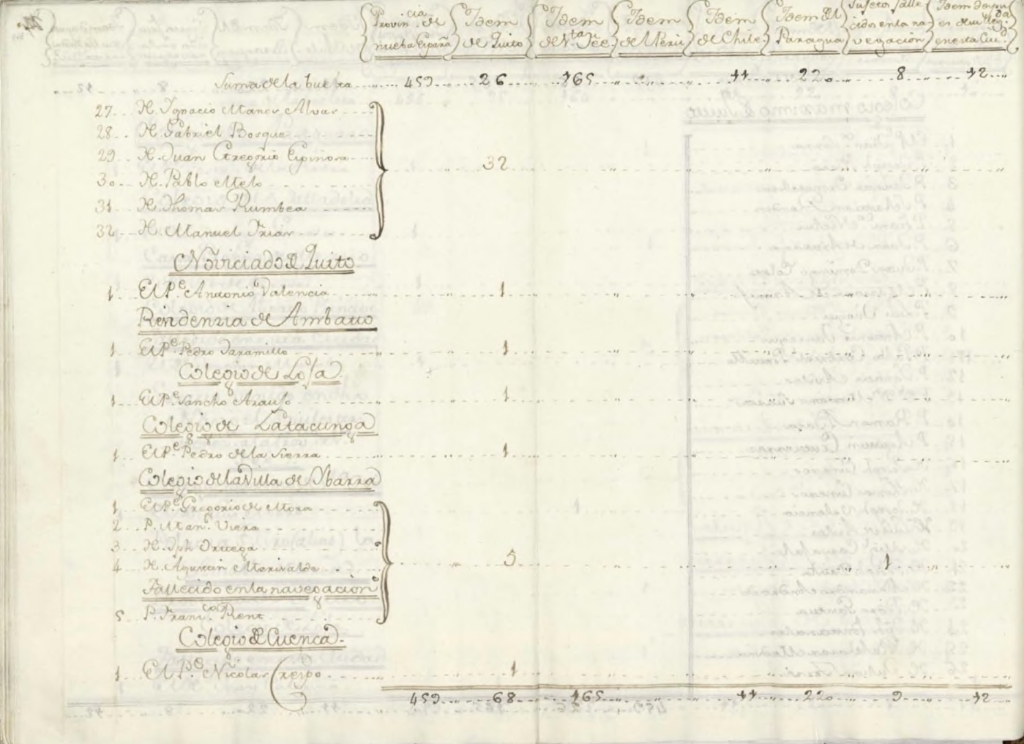 Provin.cia de nueba España Idem de Quito Idem de N.ta Fee Idem de Perù Idem de Chile Idem del Paraguai Sujetos falle cidos en la na vegación
Suma de la buelta 459 26 165 11 22 8 12
27 H. Ignacio Alvar
28 H. Gabriel Bosque
29 H. Juan Gregorio Espinosa 32
30 H. Pablo Melo
31 H. Thomas Rumbea
32 H. Manuel Frias
Noviciado de Quito
1 El P.e Antonio Valencia 1
Residenzia de Ambatto
1 El P.e Pedro Jaramillo 1
Colegio de Loja
1 El P.e Sancho Araujo 1
Colegio de Latacunga
1 El P.e Pedro de la Sierra 1
Colegio de la Villa de Ybarra
1 El P.e Gregorio de Mora
2 P. Man.l Viera
3 H. Jph Ortega
4 H. Agustin 5 1
Fallecido en la navegacion
5 P. Fran.co Rent
Colegio de Cuenca
1 El P.e Nicolas Crespo 1
459 68 165 11 22 9 12